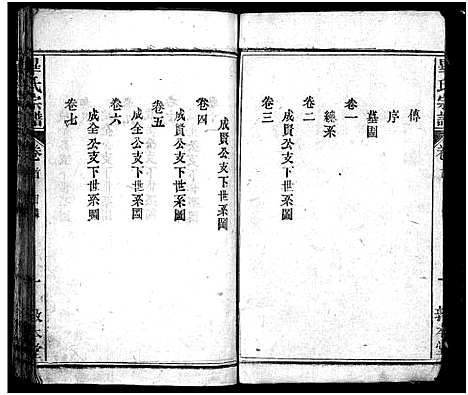 傳
序
墓圖
卷一
總系
卷二
成賢公支下世系圖
卷三
成賢公支下世系圖
卷四
成賢公支下世系圖
卷五
成全公支下世系圖
卷六
成全公支下世系圖
卷七
畢氏宗譜
卷首
一
敦本堂